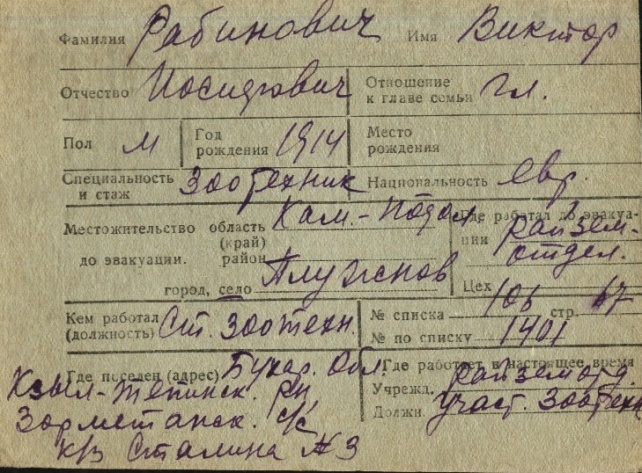 Фамилия Рабинович Имя Виктор
Отчество Иосифович Отношение к главе семьи Гл.
Пол М Год рождения 1914 Место рождения
Специальность и стаж Зоотехник Национальность Евр.
Местожительство область Кам.-Подол Где работал до эвакуа-
(край) ции Райзем-
до эвакуации. район отдел.
город, село Плужснов Цех
Кем работал № списка 106 стр. 67
(должность) Ст. зоотехн. № по списку 1401
Где поселен (адрес) Бухар. Обл. Где работает в настоящее время
Кзыл-Тепинск. рн Учрежд. Райземотд.
Зарметанск. с/с Должн. участ. Зоотехн
к/з Сталина №3